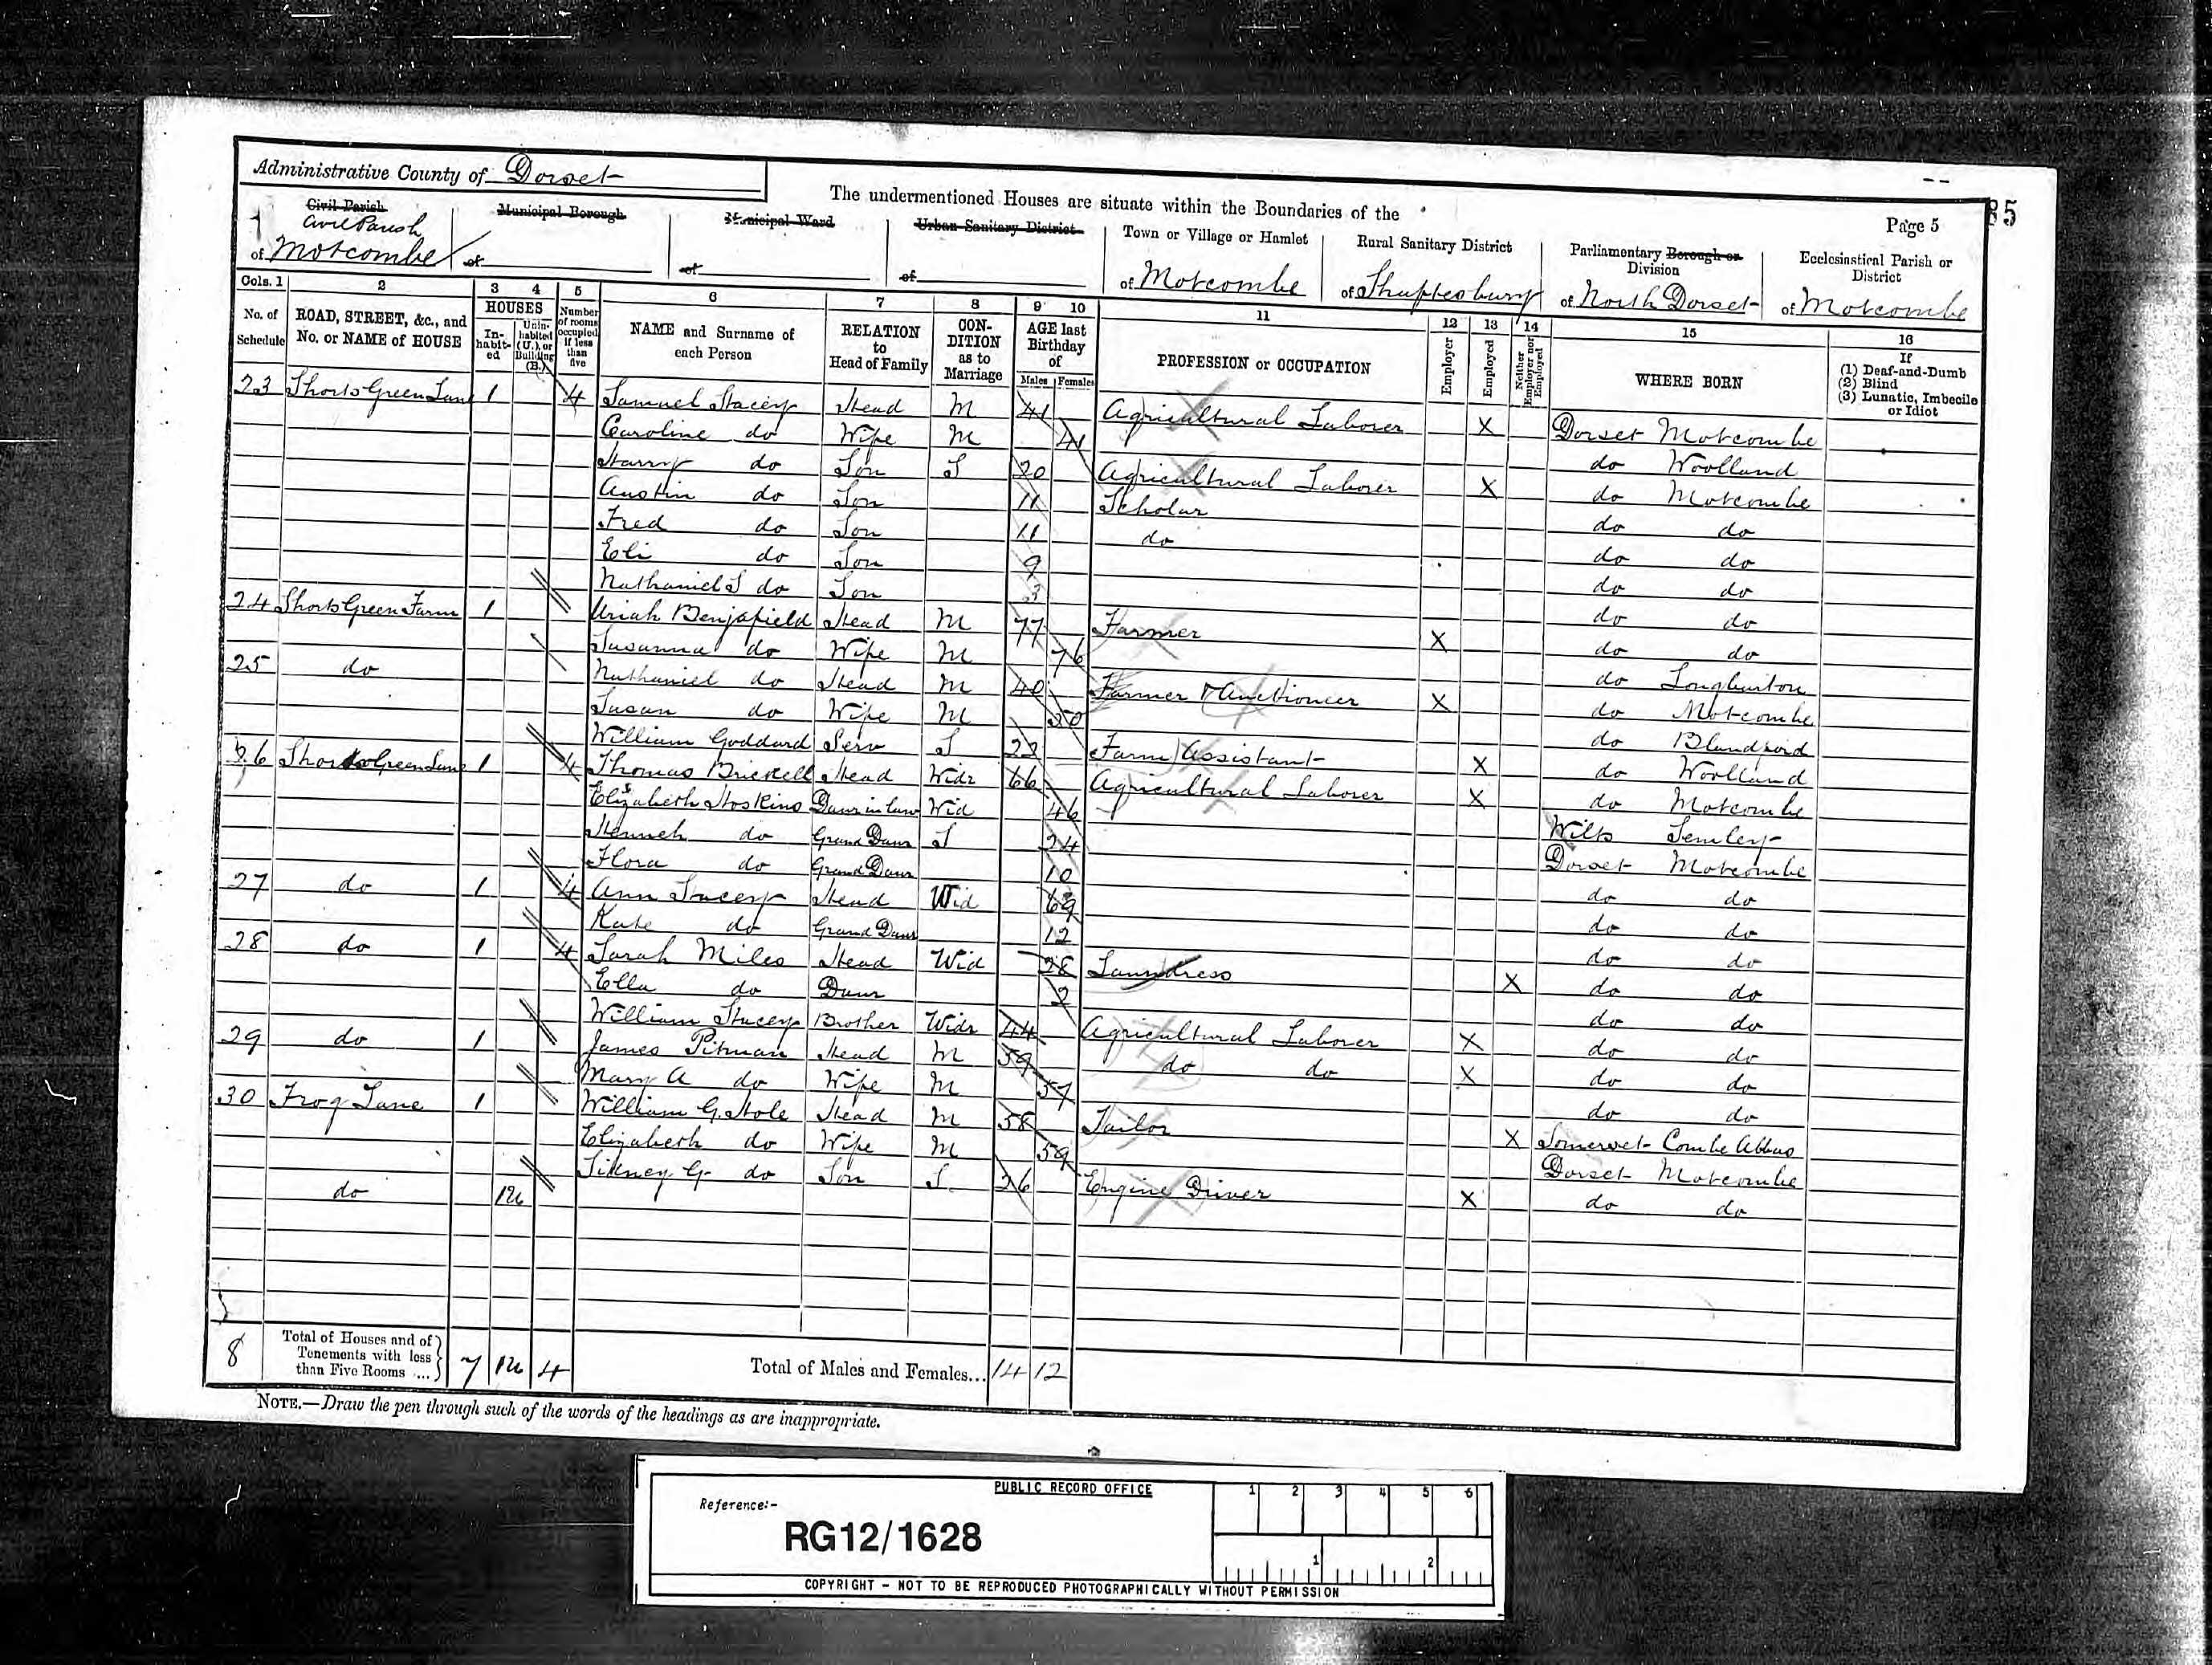 Administrative County of Dorset
The undermentioned Houses are situate within the Boundaries of the
Page 5
85
Civil Parish
Civil Parish
of Motcombe
Municipal Borough
of
Municipal Ward
of
Urban Sanitary District
of
Town or Village or Hamlet
of Motcombe
Rural Sanitary District
of Shaftesbury
Parliamentary Borough or
Division
of North Dorset
Ecclesiastical Parish or
District
of Motcombe
Cols. 1 2 3 4 5 6 7 8 9 10 11 12 13 14 15 16
No. of Schedule
ROAD, STREET, &c., and No. or NAME of HOUSE
HOUSES
Inhabited
Uninhabited (U.), or Building (B.)
Number of rooms occupied if less than five
NAME and Surname of each Person
RELATION to Head of Family
CONDITION as to Marriage
AGE last Birthday of
Males Females
PROFESSION or OCCUPATION
Employer
Employed
Neither Employer nor Employed
WHERE BORN
If
(1) Deaf-and-Dumb
(2) Blind
(3) Lunatic, Imbecile or Idiot
23 Shorts Green Lane 1 4 Samuel Stacey Head M 41 Agricultural Laborer X Dorset Motcombe
Caroline do Wife M 41 do Woolland
Harry do Son S 20 Agricultural Laborer X do Motcombe
Austin do Son 11 Scholar do do
Fred do Son 11 do do do
Eli do Son 9 do do
Nathaniel S do Son 3 do do
24 Shorts Green Farm 1 Uriah Benjafield Head M 77 Farmer X do do
Susanna do Wife M 76 do Longburton
25 do Nathaniel do Head M 40 Farmer & Auctioneer X do Motcombe
Susan do Wife M 50 do Blandford
William Goddard Serv S 22 Farm Assistant X do Woolland
26 Shorts Green Lane 1 4 Thomas Brickell Head Widr 66 Agricultural Laborer X do Motcombe
Elizabeth Hoskins Daur in law Wid 46 Wilts Semley
Hannah do Grand Daur S 24 Dorset Motcombe
Flora do Grand Daur 10 do do
27 do 1 4 Ann Stacey Head Wid 69 do do
Kate do Grand Daur 12 do do
28 do 1 4 Sarah Miles Head Wid 28 Laundress X do do
Ella do Daur 2 do do
William Stacey Brother Widr 44 Agricultural Laborer X do do
29 do 1 James Pitman Head M 59 do do X do do
Mary A do Wife M 57 do do
30 Frog Lane 1 William G. Hole Head M 58 Tailor X Somerset Combe Abbas
Elizabeth do Wife M 59 Dorset Motcombe
Sidney G do Son S 26 Engine Driver X do do
do 1U
8 Total of Houses and of Tenements with less than Five Rooms ... 7 1U 4 Total of Males and Females... 14 12
NOTE.—Draw the pen through such of the words of the headings as are inappropriate.
PUBLIC RECORD OFFICE
1 2 3 4 5 6
Reference:-
RG12/1628
1 2
COPYRIGHT - NOT TO BE REPRODUCED PHOTOGRAPHICALLY WITHOUT PERMISSION